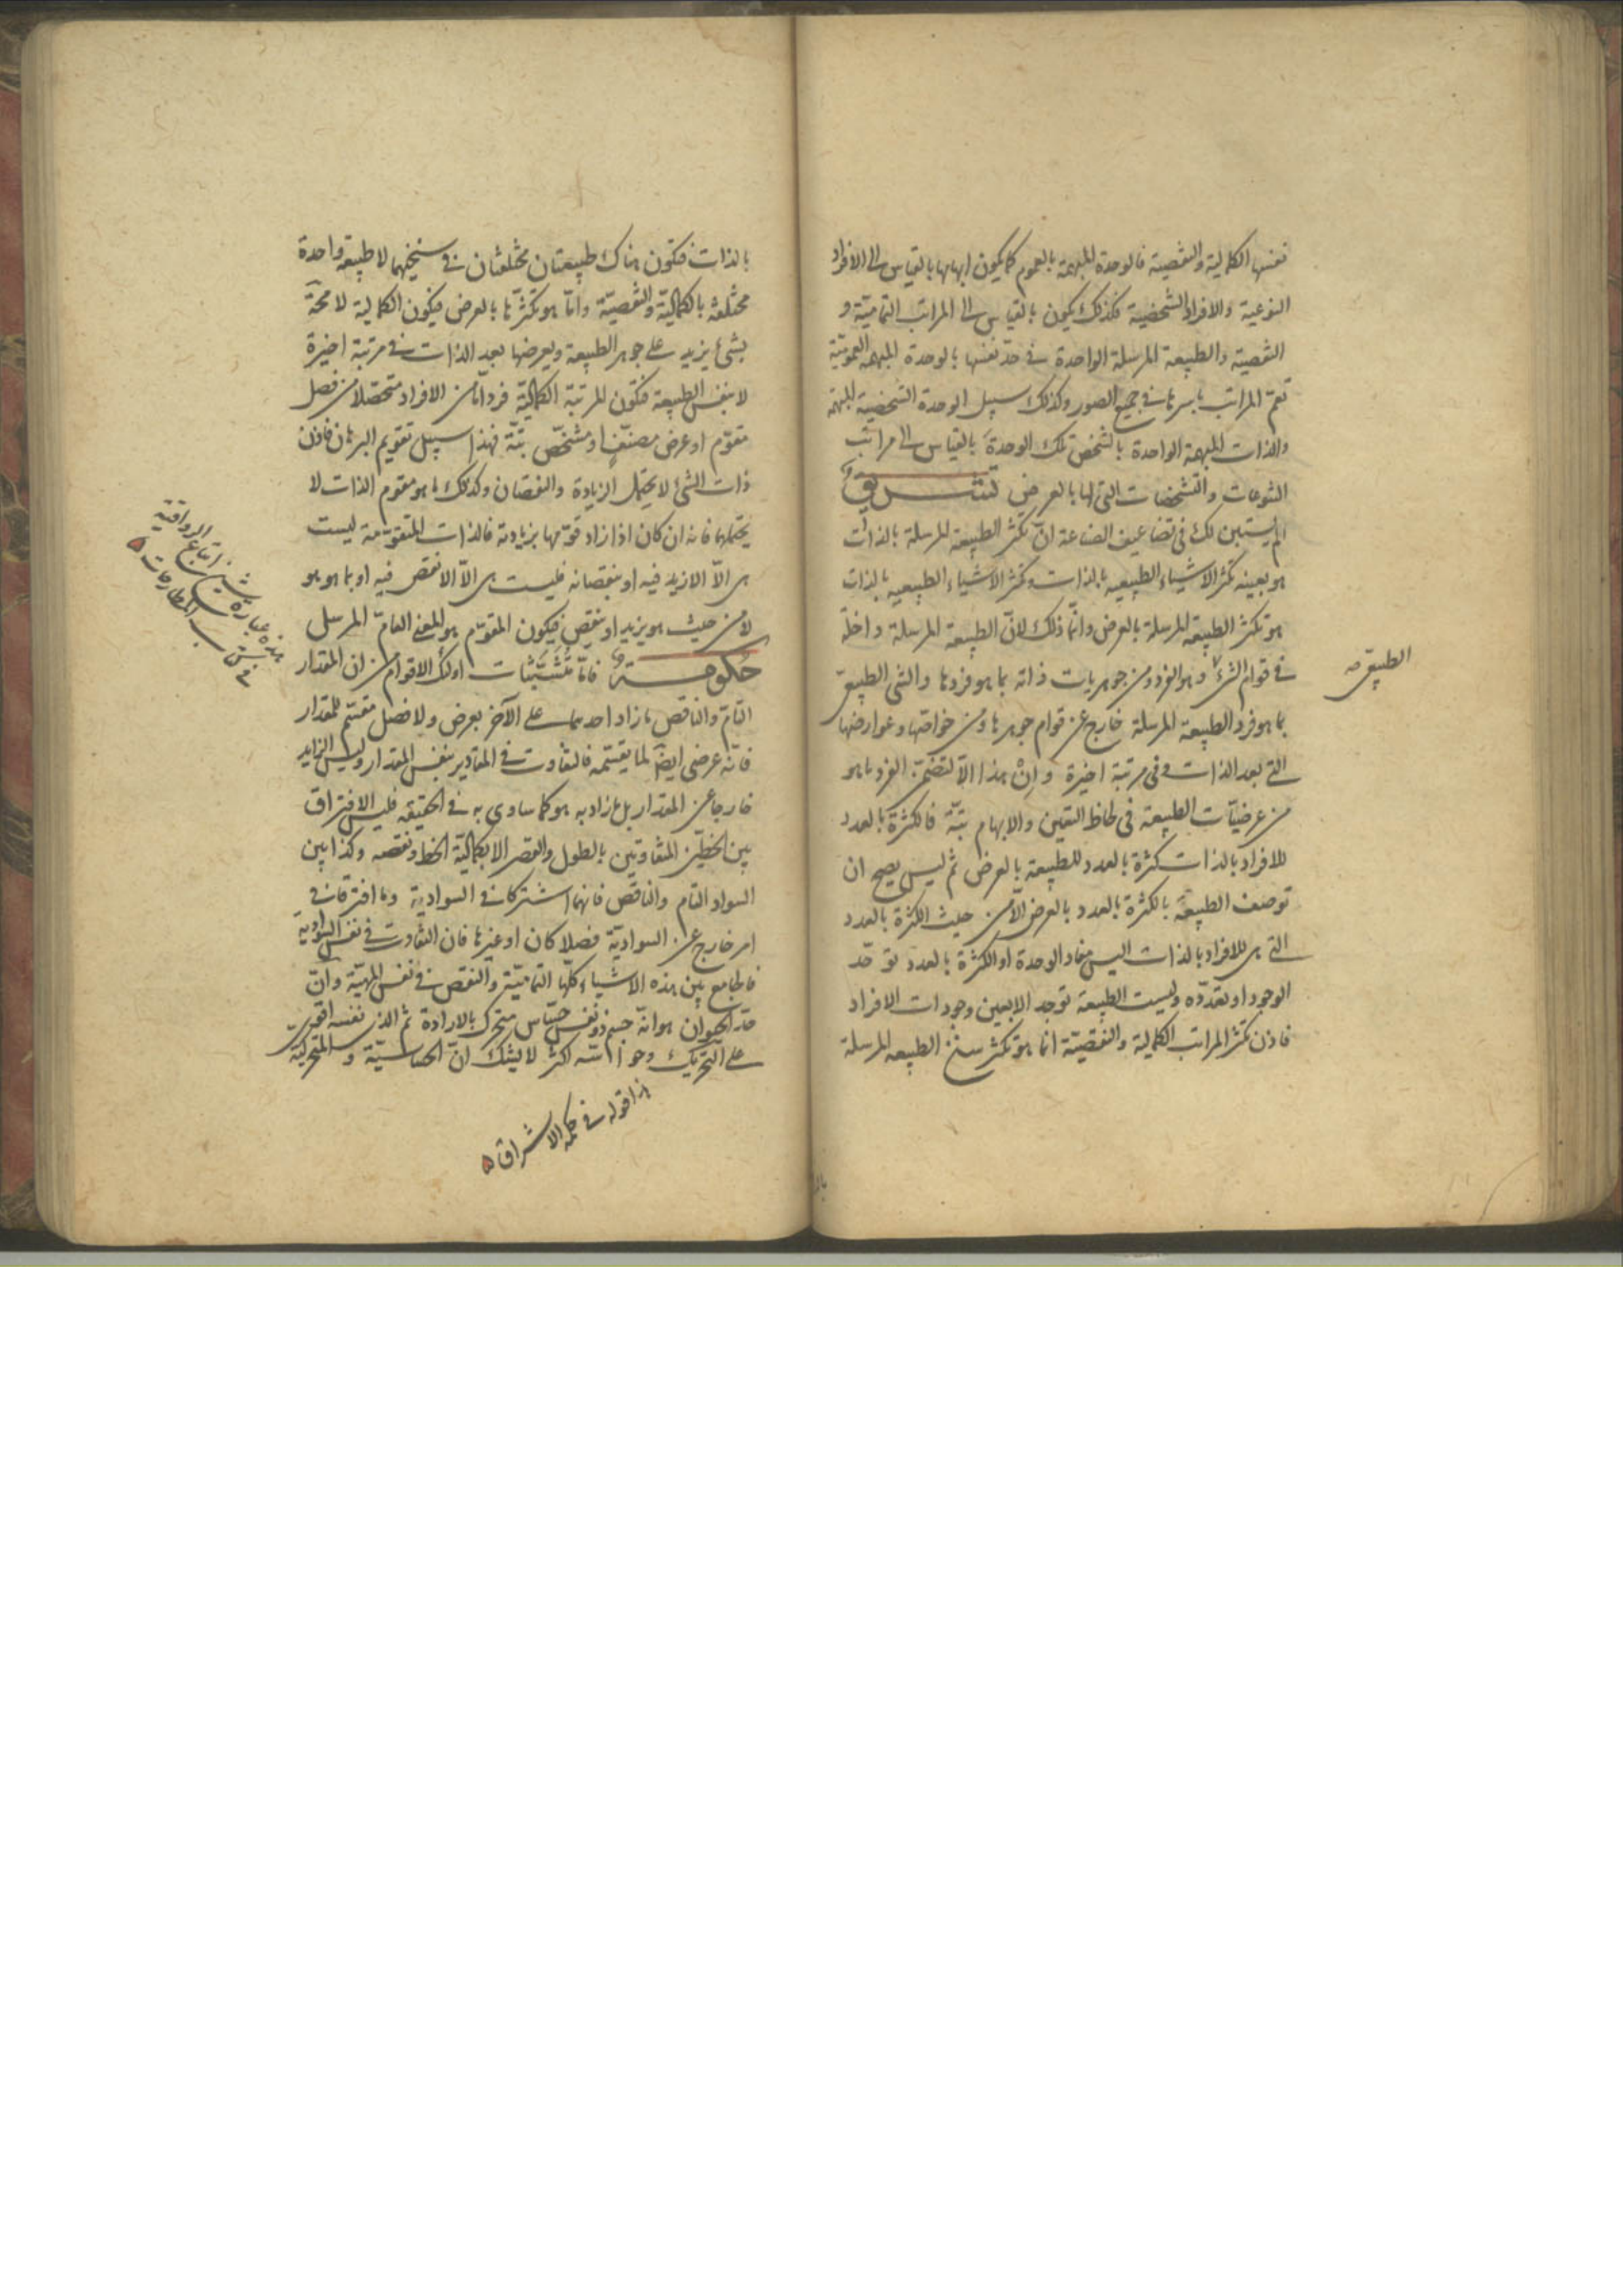 نفسها الكمالية والنقصية فالوحدة المبهمة بالعموم كما يكون ابهامها بالقياس الى الافراد
النوعية والافراد الشخصية فكذلك يكون بالقياس الى المراتب التمامية و
النقصية والطبيعة المرسلة الواحدة في حد نفسها بالوحدة المبهمة العمومية
تعم المراتب باسرها في جميع الصور وكذلك سبيل الوحدة الشخصية المبهمة
والذات المبهمة الواحدة بالشخص تلك الوحدة بالقياس الى مراتب
التنوعات والتشخصات التي لها بالعرض تشريق
الم يستبين لك في تضاعيف الصناعة ان تكثر الطبيعة المرسلة بالذات
هو بعينه تكثر الاشياء الطبيعيه بالذات وتكثر الاشياء الطبيعيه بالذات
هو تكثر الطبيعة المرسلة بالعرض وانما ذلك لان الطبيعة المرسلة داخلة
في قوام الشئ وهو الفرد ومن جوهريات ذاته بما هو فردها والشئ الطبيعى
بما هو فرد الطبيعة المرسلة خارج عن قوام جوهرها ومن خواصها وعوارضها
التي بعد الذات وفي مرتبة اخيرة وان هذا الا لتضمن الفرد ما هو
من عرضيات الطبيعة في لحاظ التعين والابهام بتة فالكثرة بالعدد
للافراد بالذات كثرة بالعدد للطبيعة بالعرض ثم ليس يصح ان
توصف الطبيعة بالكثرة بالعدد بالعرض الا من حيث الكثرة بالعدد
التي هي للافراد بالذات اليس مفاد الوحدة او الكثرة بالعدد توحّد
الوجود او تعدده وليست الطبيعة توجد الا بعين وجودات الافراد
فاذن تكثر المراتب الكمالية والنقصية انما هو تكثر سنخ الطبيعه المرسلة
الطبيعي صح
بالذات فتكون هناك طبيعتان مختلفتان في سنخيهما لا طبيعة واحدة
مختلفة بالكمالية والنقصية وانما هو تكثرها بالعرض فيكون الكمالية لاحقة
بشئ يزيد على جوهر الطبيعة ويعرضها بعد الذات في مرتبة اخيرة
لا بنفس الطبيعة فتكون المرتبة الكمالية فردا ما من الافراد متحصلا من فصل
مقوم او عرض مصنف او مشخص بتة فهذا سبيل تقويم البرهان فاذن
ذات الشئ لا يحتمل الزيادة والنقصان وكذلك ما هو مقوم الذات لا
يحتملهما فانه ان كان اذا زاد قوتها بزيادته فالذات المتقومة ليست
هي الا الازيد فيه او بنقصانه فليست هي الا الانقص فيه او بما هو هو
لا من حيث هو يزيد او ينقص فيكون المقوم هو المعنى العام المرسل
حكومة فاما متشبثات اولئك الاقوام من ان المقدار
التام والناقص ما زاد احدهما على الآخر بعرض ولا فصل مقسم للمقدار
فانه عرضي ايضا لما يقسمه فالتفاوت في المقادير بنفس المقدار وليس الزايد
خارجا عن المقدار بل ما زاد به هو كما ساوى به في الحقيقه فليس الافتراق
بين الخطين المتفاوتين بالطول والقصر الا بكمالية الخط ونقصه وكذا بين
السواد التام والناقص فانهما اشتركا في السوادية وما افترقا في
امر خارج عن السوادية فصلا كان او غيرها فان التفاوت في نفس السوادية
فالجامع بين هذه الاشياء كلها التمامية والنقص في نفس المهية وان
حد الحيوان هو انه جسم ذو نفس حساس متحرك بالارادة ثم الذي نفسه اقوى
على التحريك وحواسه اكثر لا يشك ان الحساسية والمتحركية
هذا قوله في حكمة الاشراق
هذه عبارة شيخ اتباع الرواقية
في كتاب المطارحات